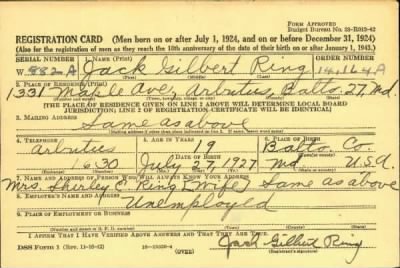 FORM APPROVED
Budget Bureau No. 33-R013-42
REGISTRATION CARD (Men born on or after July 1, 1924, and on or before December 31, 1924)
(Also for the registration of men as they reach the 18th anniversary of the date of their birth on or after January 1, 1943.)
SERIAL NUMBER 1. NAME (Print) ORDER NUMBER
W 882 A Jack Gilbert Ring 14,164A
2. PLACE OF RESIDENCE (Print)
1331 Maple Ave, Arbutus, Balto. 27, Md.
[THE PLACE OF RESIDENCE GIVEN ON LINE 2 ABOVE WILL DETERMINE LOCAL BOARD
JURISDICTION; LINE 2 OF REGISTRATION CERTIFICATE WILL BE IDENTICAL]
3. MAILING ADDRESS
Same as above
[Mailing address if other than place indicated on line 2. If same, insert word same]
4. TELEPHONE 5. AGE IN YEARS 6. PLACE OF BIRTH
Arbutus 19 Balto. Co.
DATE OF BIRTH
1630 July 27 1927 Md. U.S.A
(Exchange) (Number) (Mo.) (Day) (Yr.) (State or country)
7. NAME AND ADDRESS OF PERSON WHO WILL ALWAYS KNOW YOUR ADDRESS
Mrs. Shirley E. Ring (Wife) Same as above
8. EMPLOYER'S NAME AND ADDRESS
Unemployed
9. PLACE OF EMPLOYMENT OR BUSINESS
(Number and street or R. F. D. number) (Town) (County) (State)
I AFFIRM THAT I HAVE VERIFIED ABOVE ANSWERS AND THAT THEY ARE TRUE.
DSS Form 1 (Rev. 11-16-42) (OVER) Jack Gilbert Ring
(Registrant's signature)